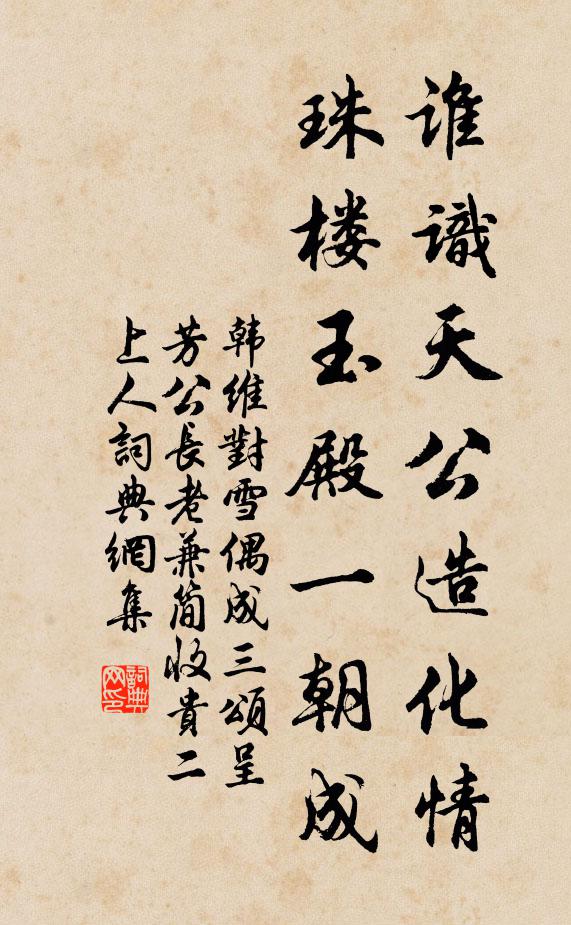 谁識天公造化情
珠楼玉殿一朝成
韩维對雪偶成三頌呈
芳公長老兼简收貴二
上人詞典網集
詞典
网印